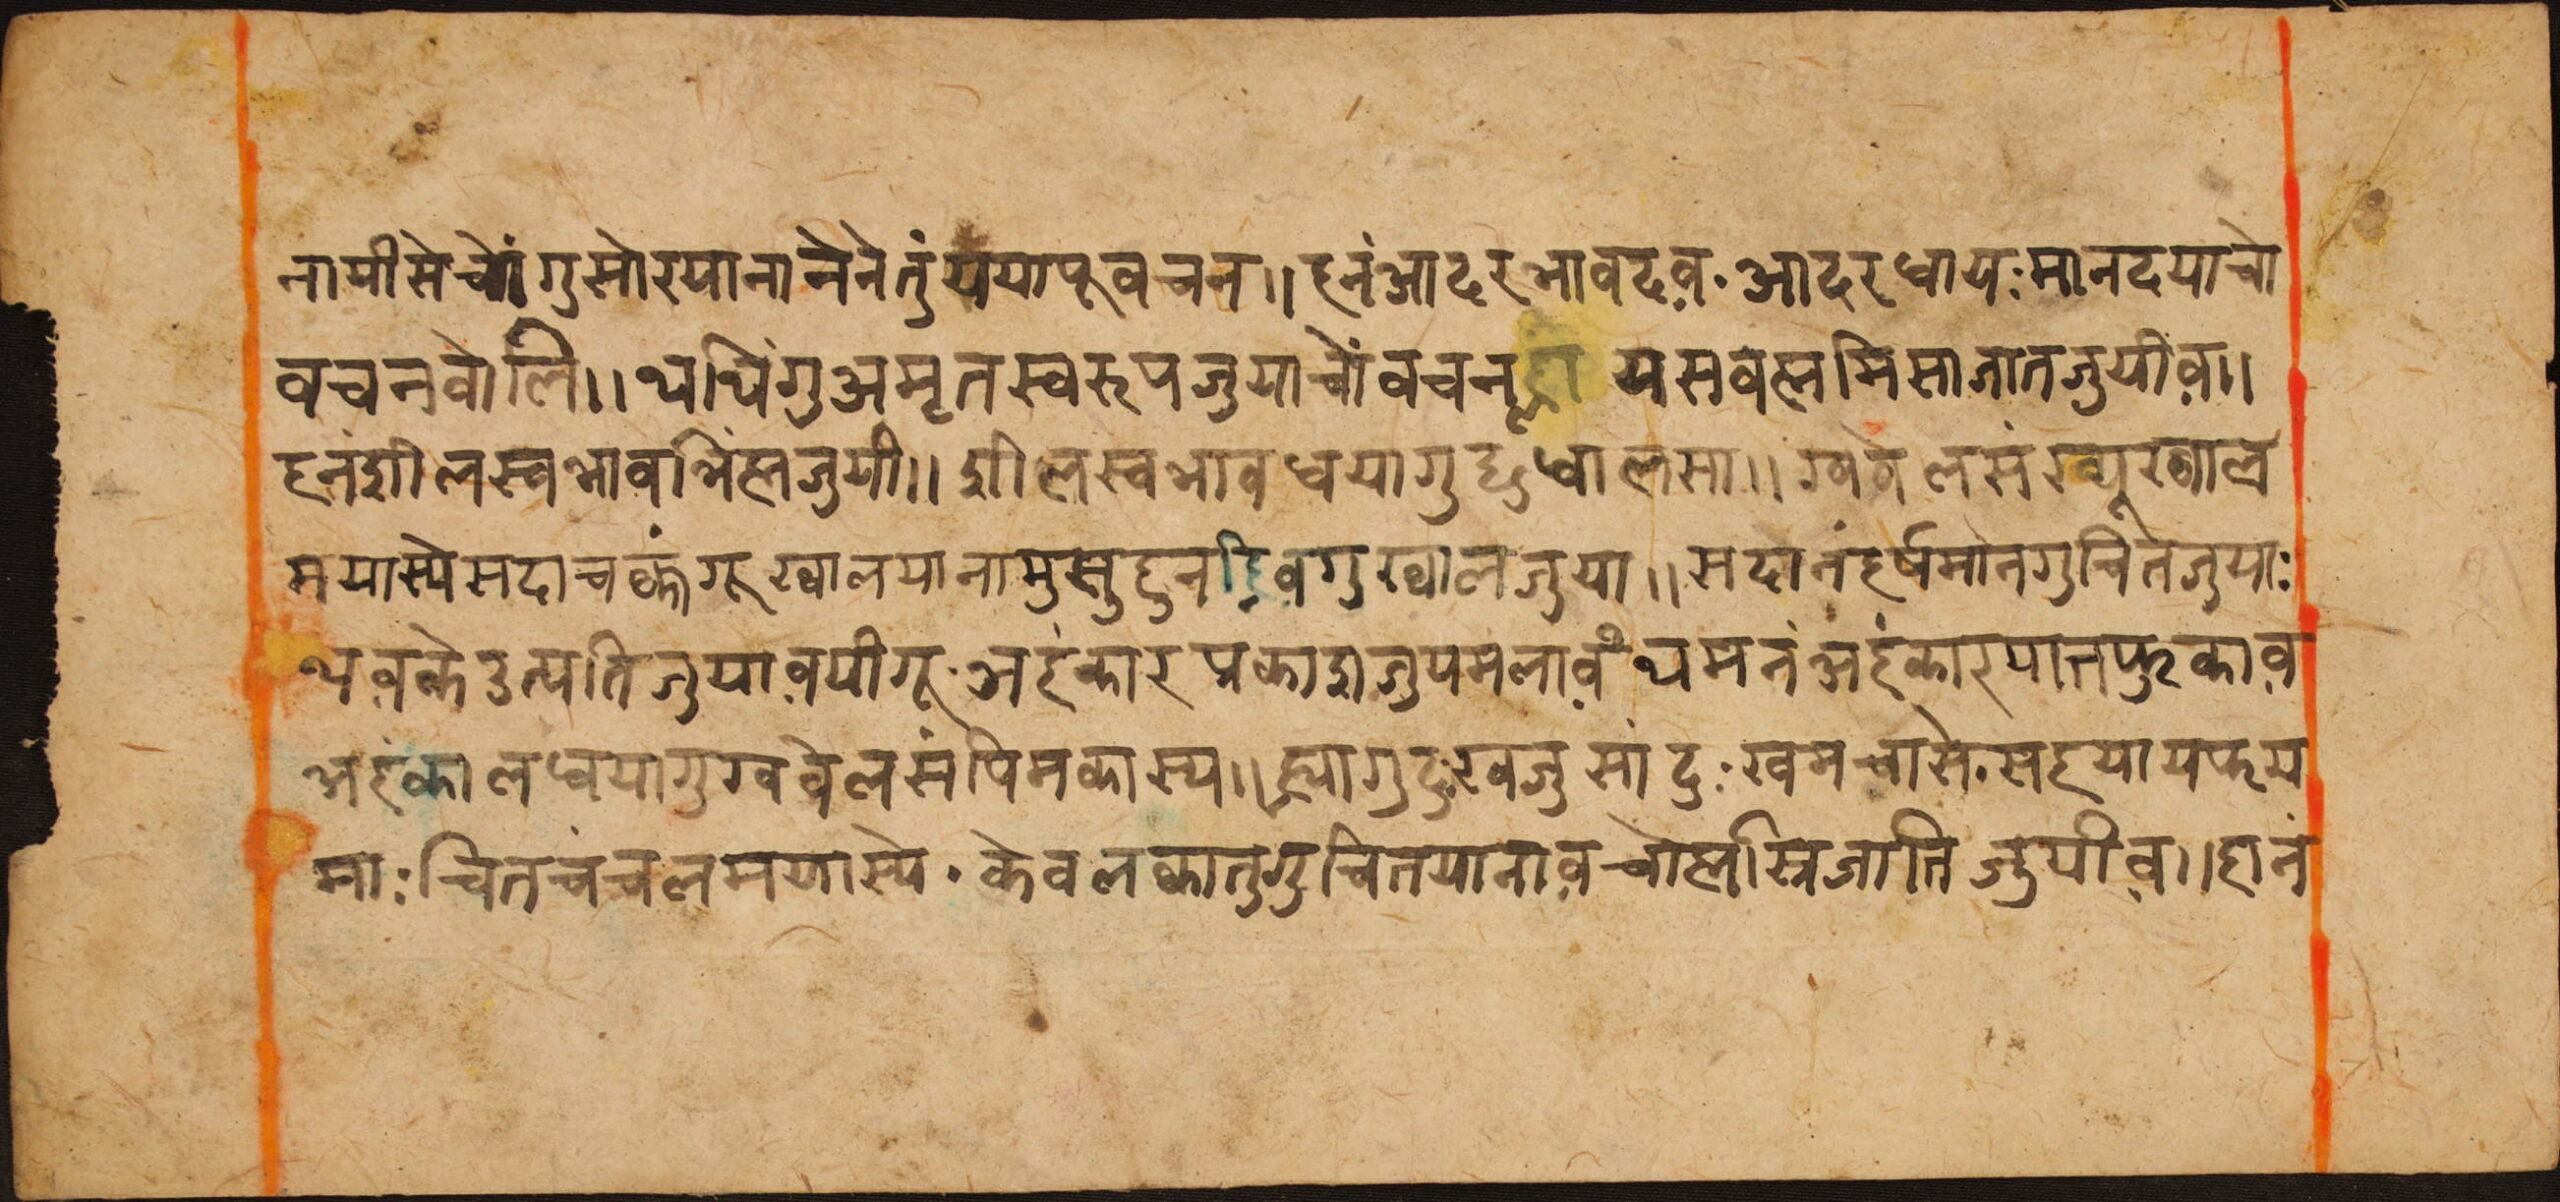 नायीसेचोंगुसोरयानानेनेतुंययापूवचन॥ हनंआदरभावदव़·आदरधायः मानदयाचो
वचनवोलि॥ थथिंगुअमृतस्वरूपजुयाचोंवचनह्ला यसवह्ममिसाजातजुयीव़॥
हनंशीलस्वभावभिंह्मजुयी॥ शीलस्वभावधयागुछुधालसा॥ ग्वबेलसंख्यूख्वाल
मयास्येसदाचकंगूख्वालयानामुसुहुनहिव़गुख्वालजुया॥ सदानंहर्षमानगुचितजुयाः
थव़केउत्पतिजुयाव़यीगू·अहंकारप्रकाशजुयमलाव़ंथमनंअहंकारयातफुकाव़
अहंकालधयागुग्वबेलसंपिमकास्य॥ ह्यागुदुःखजुसांदुःखमचासे·सहयायफय
माः चितचंचलमयास्ये·केवलकातुगुचितयानाव़चोह्मस्त्रिजातिजुयीव़॥ हानं